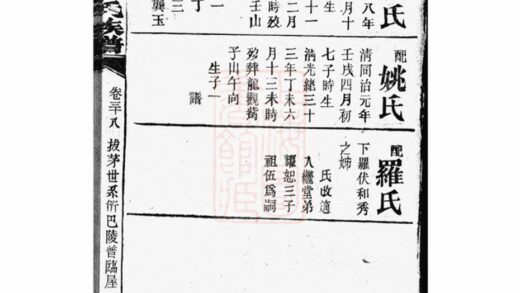 氏
八年
月十
生
十一
二月
時歿
壬山
一
丁
三
龔玉
配
姚氏
清同治元年
壬戌四月初
七子時生
清光緒三十
三年丁未六
月十三未時
歿葬龍觀嘴
子山午向
生子一
譜
配
羅氏
下羅伏和秀
之姊
氏改適
入繼堂弟
耀恕三子
祖伍爲嗣
氏族譜
卷三十八 拔茅世系衍巴陵普臨屋